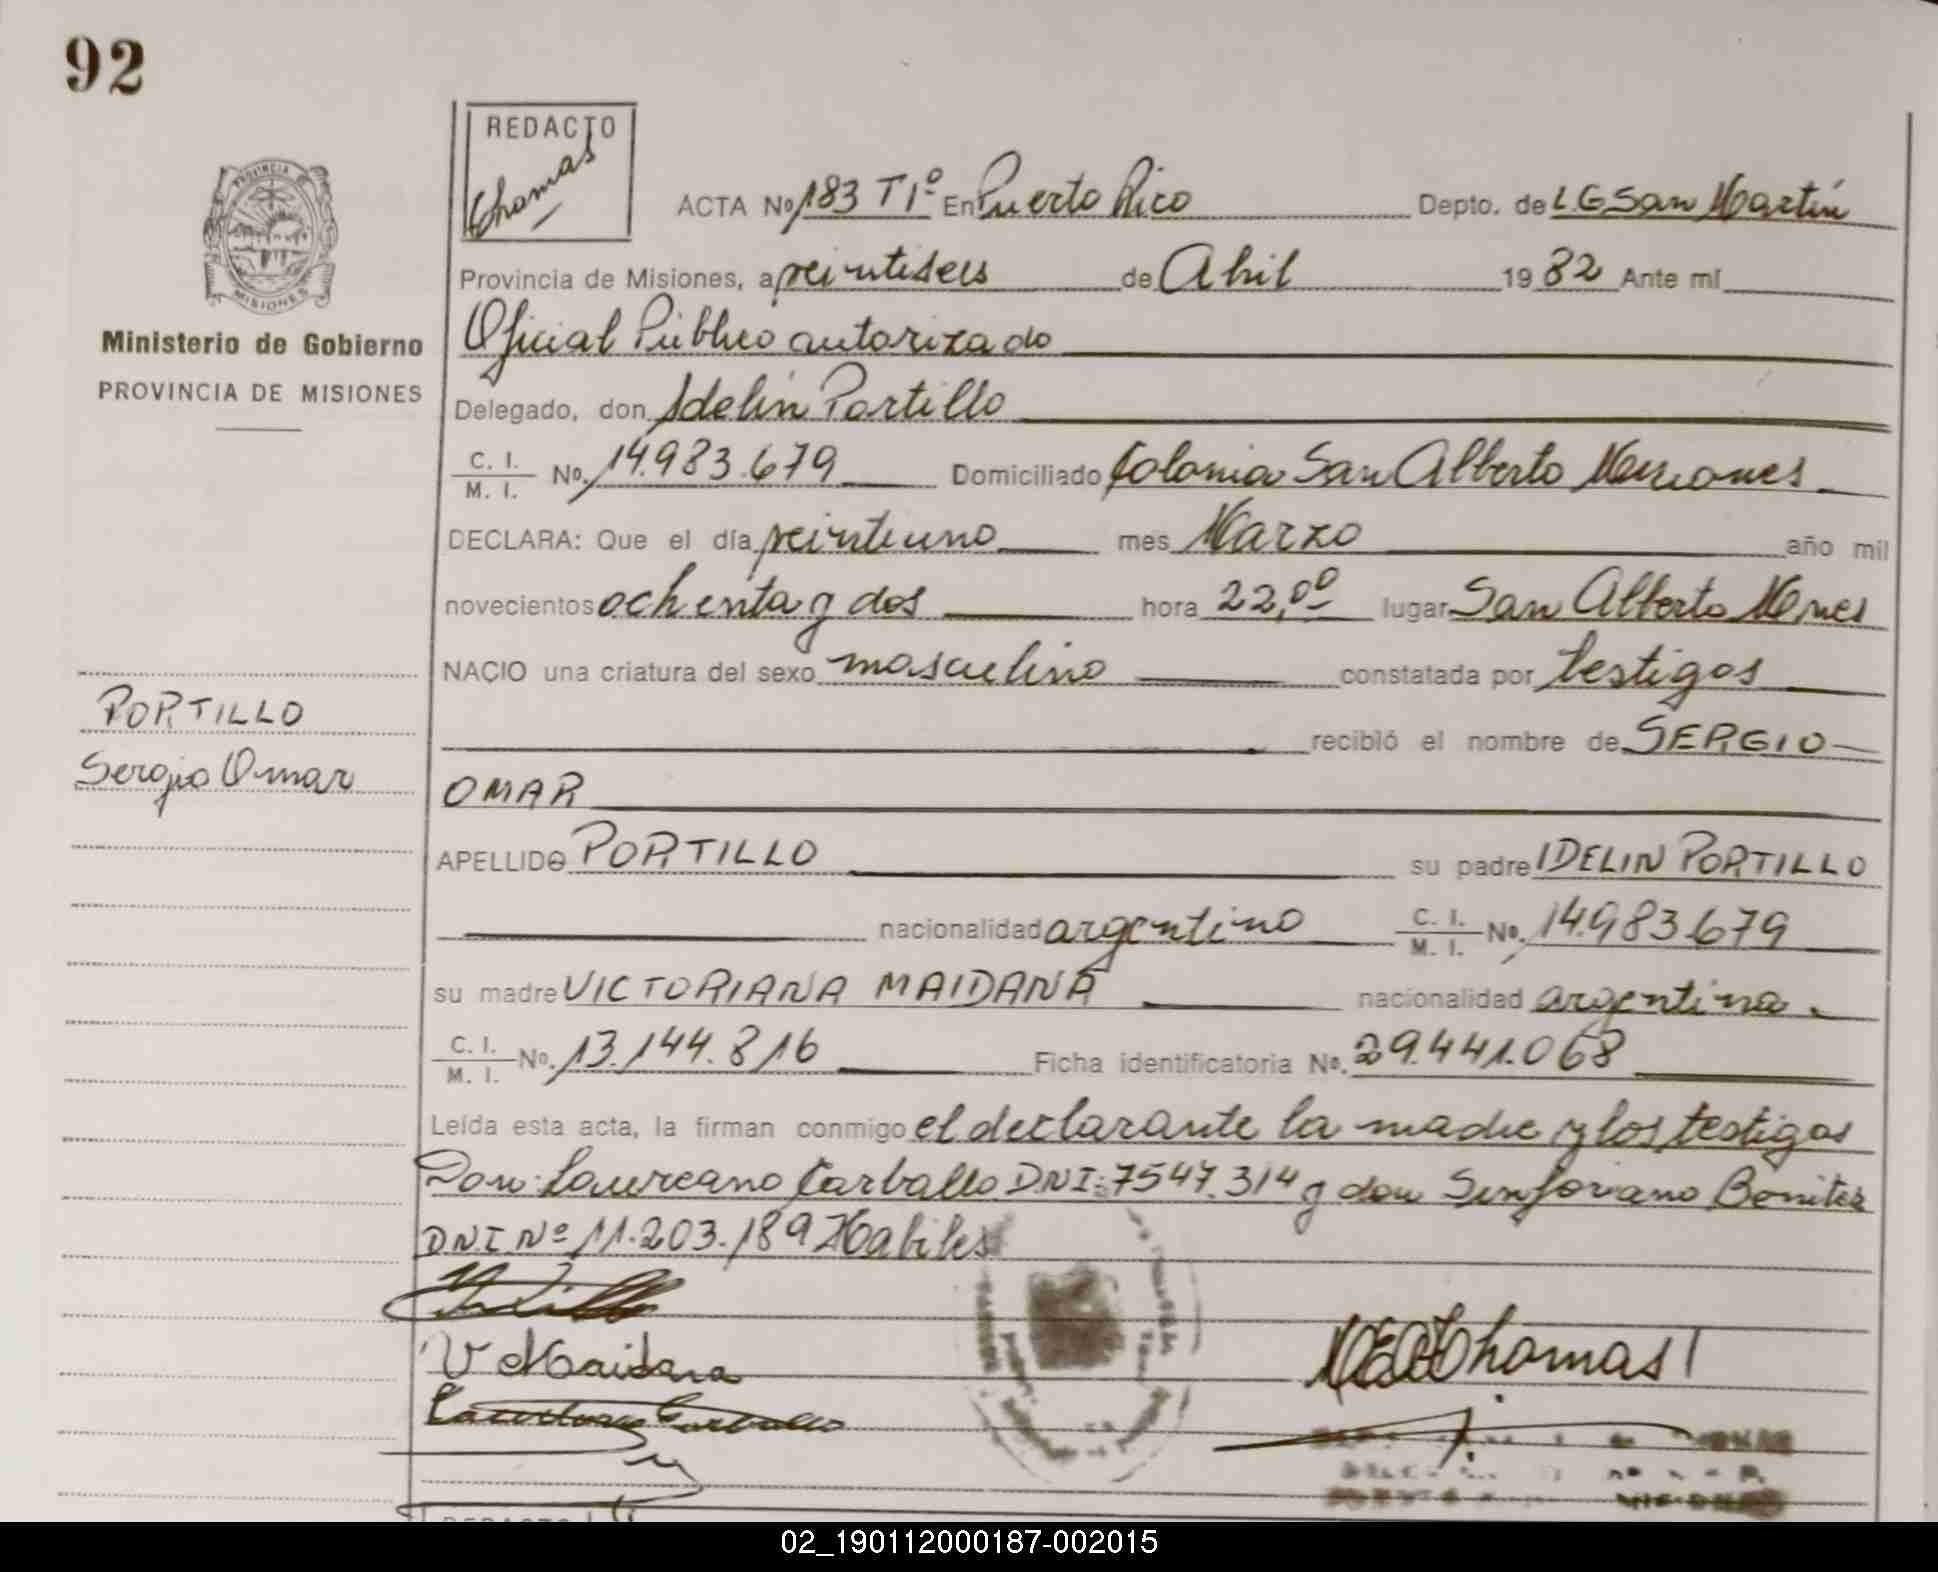 92
REDACTO
Thomas
PROVINCIA
MISIONES
Ministerio de Gobierno
PROVINCIA DE MISIONES
ACTA Nº 183 T1º En Puerto Rico Depto. de L.G San Martín
Provincia de Misiones, a veintiseis de Abril 1982 Ante mí
Oficial Público autorizado
Delegado, don Idelin Portillo
C. I. / M. I. Nº. 14.983.679 Domiciliado Colonia San Alberto Misiones
DECLARA: Que el día veintiuno mes Marzo año mil
novecientos ochenta y dos hora 22,00 lugar San Alberto Mnes
NACIO una criatura del sexo masculino constatada por testigos
PORTILLO
recibió el nombre de SERGIO
Sergio Omar
OMAR
APELLIDO PORTILLO su padre IDELIN PORTILLO
nacionalidad argentino C. I. / M. I. Nº. 14.983.679
su madre VICTORIANA MAIDANA nacionalidad argentina.
C. I. / M. I. Nº. 13.144.816 Ficha identificatoria Nº. 29.441.068
Leída esta acta, la firman conmigo el declarante la madre y los testigos
Don: Laureano Carballo DNI: 7547.314 y don Sinforiano Benitez
DNI Nº 11.203.189 Habiles
V Maidana
Laureano Carballo
Thomas
02_190112000187-002015